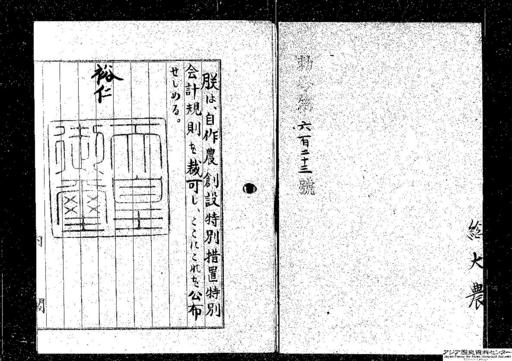 勅令第六百二十三號
総大農
朕は、自作農創設特別措置特別
会計規則を裁可し、ここにこれを公布
せしめる。
裕仁
天皇御璽
内閣
アジア歴史資料センター